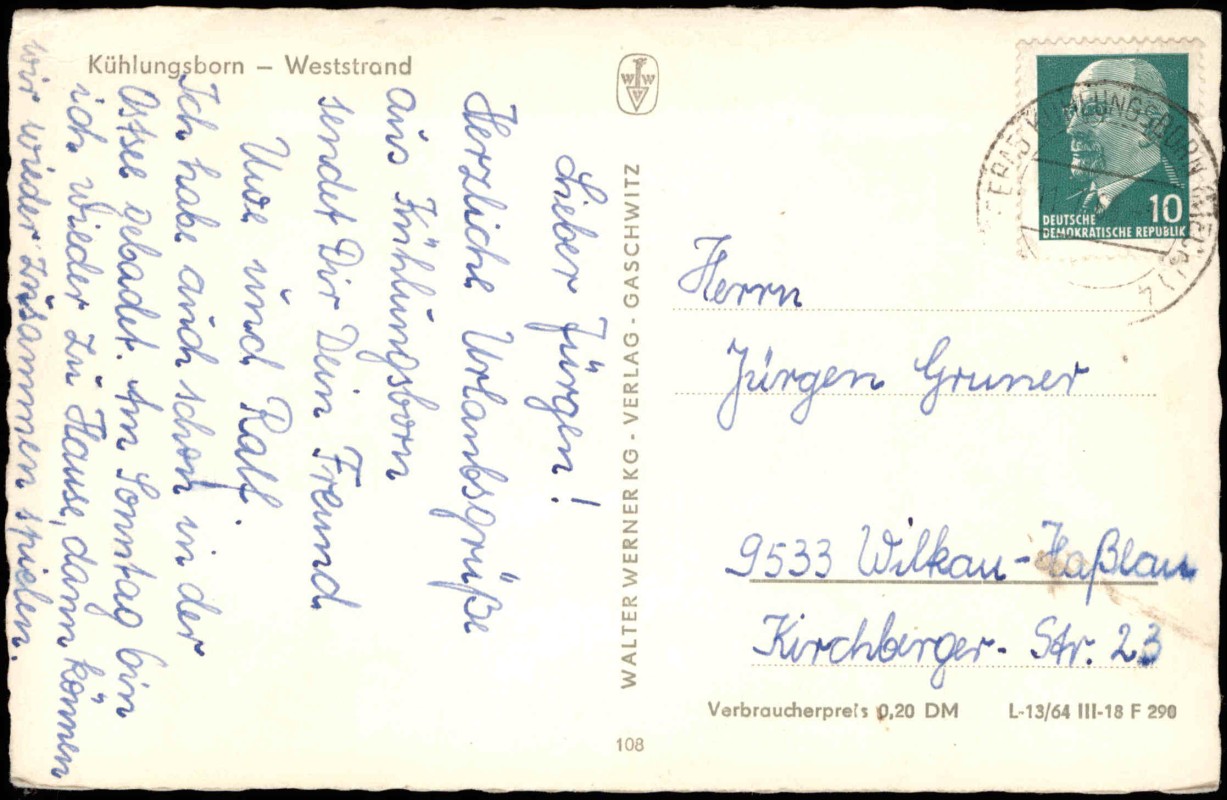 Kühlungsborn – Weststrand
Lieber Jürgen!
Herzliche Urlaubsgrüße
aus Kühlungsborn
sendet Dir Dein Freund
Uwe und Ralf.
Ich habe auch schon in der
Ostsee gebadet. Am Sonntag bin
ich wieder zu Hause, dann können
wir wieder zusammen spielen.
WWV
WALTER WERNER KG - VERLAG - GASCHWITZ
DEUTSCHE
DEMOKRATISCHE REPUBLIK
10
Herrn
Jürgen Gruner
9533 Wilkau-Haßlau
Kirchberger- Str. 23
Verbraucherpreis 0,20 DM L-13/64 III-18 F 290
108